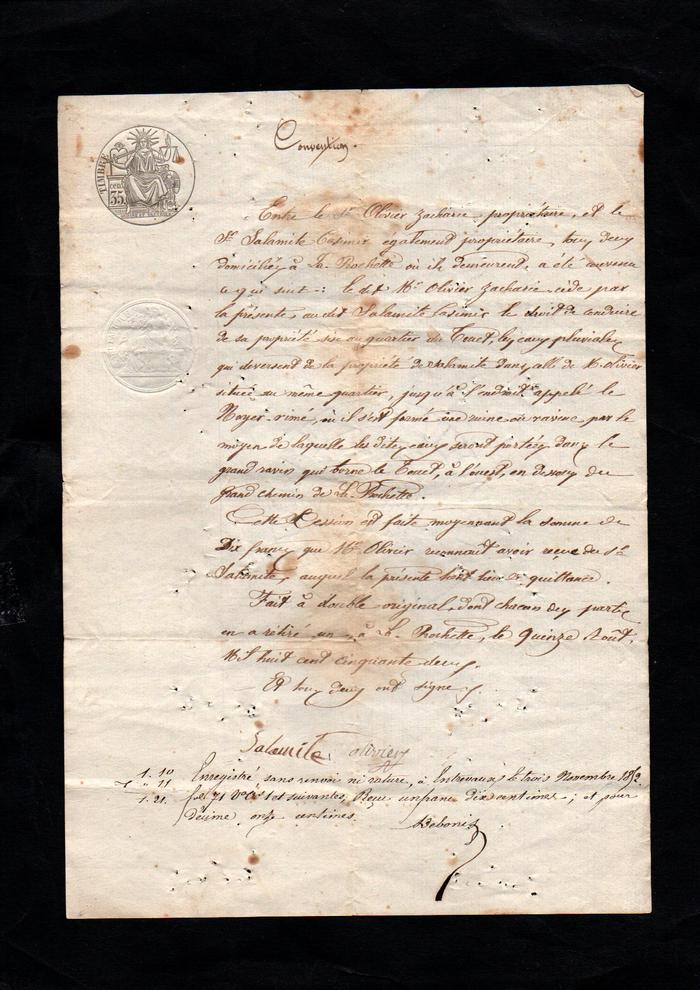 TIMBRE
35 cen.
Convention.
Entre le Sr. Olivier Zacharie propriétaire, et le
Sr. Salamite Casimir egalement propriétaire, tous deux
domiciliés à La Rochette où ils demeurent, a été convenu
ce qui suit: le dit Mr. Olivier Zacharie cède par
la présente au dit Salamite Casimir le droit de conduire
de sa propriété sise au quartier du Touet, les eaux pluviales
qui deversent de la propriété de Salamite dans celle de M. Olivier
située au même quartier, jusqu'à l'endroit appelé le
Noyer-rimé, où il s'est formé une ruine ou ravine par le
moyen de laquelle les dites eaux seront portées dans le
grand ravin qui borne le Touet, à l'ouest, en dessous du
grand chemin de La Rochette.
Cette Cession est faite moyennant la somme de
Dix francs que Mr. Olivier reconnait avoir reçue du Sr.
Salamite, auquel la présente sert de quittance.
Fait à double original, dont chacun des parties
en a rétiré un, à La Rochette, le quinze Août,
Mil huit cent cinquante deux.
Et tous deux ont signé.
Salamite olivier
1. 10
" 11
1. 21.
Enregistré sans renvoi ni rature, à Entrevaux le trois Novembre 1852.
fol 71 Vo Cs 1 et suivantes, Reçu un franc dix centimes; et pour
décime onze centimes.
Debonis